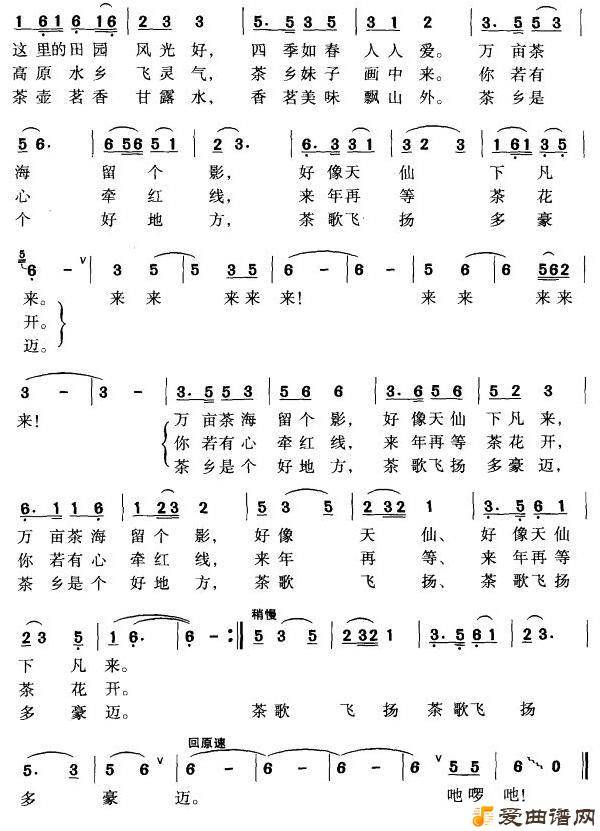 1 6 1 6 1 6 | 2 2 3 3 | 5. 5 3 5 | 3 2 2 | 3. 5 5 3
这里的田园 风光好， 四季如春 人人爱。 万亩茶
高原水乡 飞灵气， 茶乡妹子 画中来。 你若有
茶壶茗香 甘露水， 香茗美味 飘山外。 茶乡是
5 6. | 6 5 6 5 5 1 | 2 3. | 6. 3 3 1 | 3 2 3 | 1 6 1 3 5
海 留个影， 好像天仙 下凡
心 牵红线， 来年再等 茶花
个 好地方， 茶歌飞扬 多豪
5 6 - V | 3 5 5 | 3 5 5 | 6 - | 6 - | 5 6 6 | 5 6 2
来。 来来 来来来！ 来来 来来
开。
迈。
3 - | 3 - | 3. 5 5 3 | 5 6 6 | 3. 6 5 6 | 5 2 3
来！ 万亩茶海 留个影， 好像天仙 下凡来，
你若有心 牵红线， 来年再等 茶花开，
茶乡是个 好地方， 茶歌飞扬 多豪迈，
6. 1 1 6 | 1 2 3 2 | 5 3 5 | 2 2 3 2 1 | 3. 5 6 1
万亩茶海 留个影， 好像 天仙、 好像天仙
你若有心 牵红线， 来年 再等、 来年再等
茶乡是个 好地方， 茶歌 飞扬、 茶歌飞扬
稍慢
2 3 5 | 1 6. | 6 - :‖ 5 3 5 | 2 3 2 1 | 3. 5 6 1 | 2 3.
下凡来。
茶花开。
多豪迈。 茶歌 飞扬 茶歌飞扬
回原速
5. 3 | 5 6 V | 6 - | 6 - | 6 6 V | 5 5 | 6 0 ‖
多豪迈。 吔啰吔！
爱曲谱网